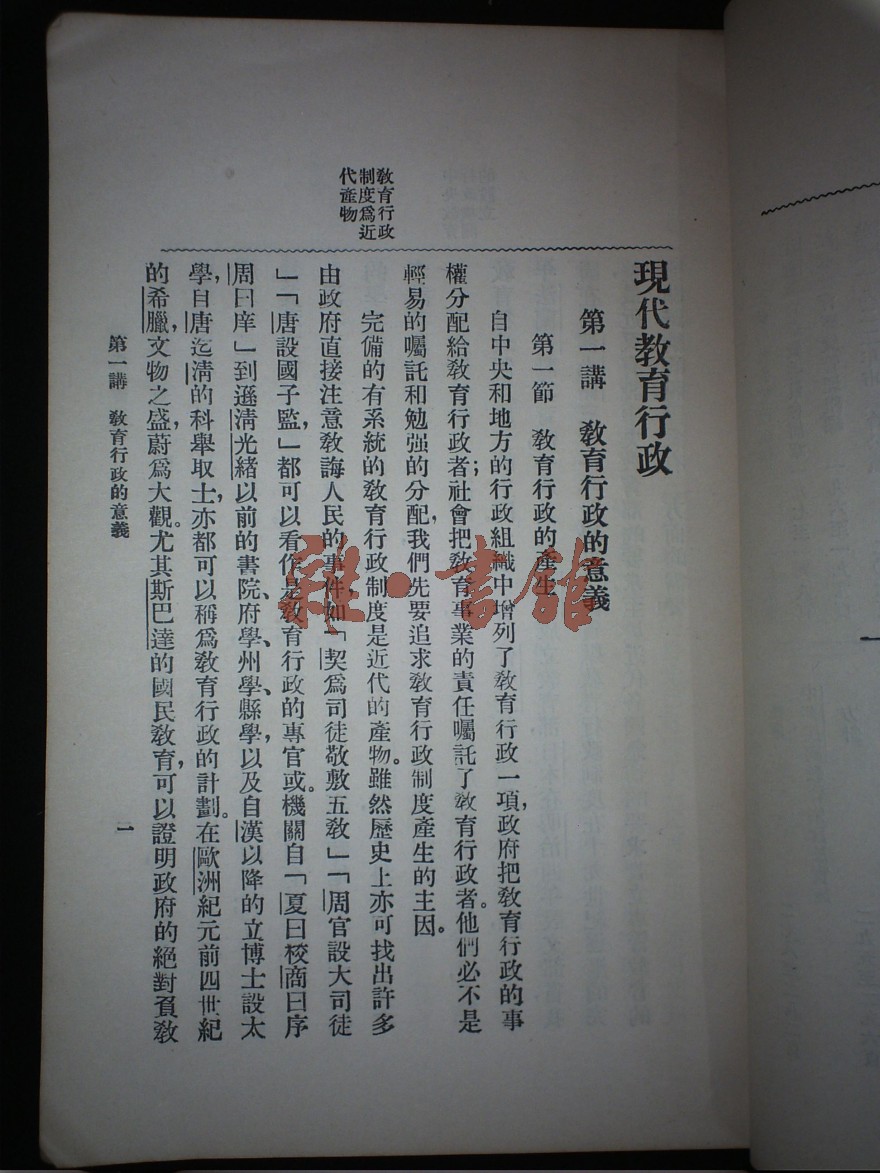 現代教育行政
第一講　教育行政的意義
第一節　教育行政的產生
自中央和地方的行政組織中增列了教育行政一項,政府把教育行政的事
權分配給教育行政者;社會把教育事業的責任囑託了教育行政者。他們必不是
輕易的囑託和勉强的分配,我們先要追求教育行政制度產生的主因。
完備的有系統的教育行政制度是近代的產物。雖然歷史上亦可找出許多
由政府直接注意教誨人民的事件,如「契爲司徒敬敷五教」「周官設大司徒
」「唐設國子監,」都可以看作是教育行政的專官或機關。自「夏曰校商曰序
周曰庠」到遜清光緒以前的書院、府學、州學、縣學,以及自漢以降的立博士設太
學,自唐迄清的科舉取士,亦都可以稱爲教育行政的計劃。在歐洲紀元前四世紀
的希臘,文物之盛,蔚爲大觀。尤其斯巴達的國民教育,可以證明政府的絕對負教
教育行政
制度爲近
代產物
第一講　教育行政的意義
一
雜·書館